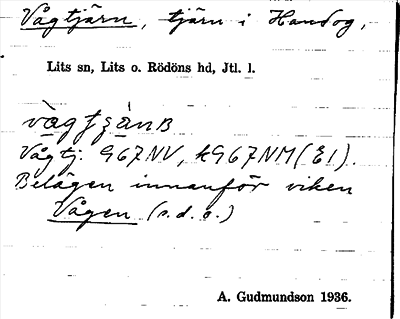 Vågtjärn, tjärn i Handog,
Lits sn, Lits o. Rödöns hd, Jtl. l.
Vågtj. 967NV, k967NM (E1).
Belägen innanför viken
Vågen (s.d.o.)
A. Gudmundson 1936.